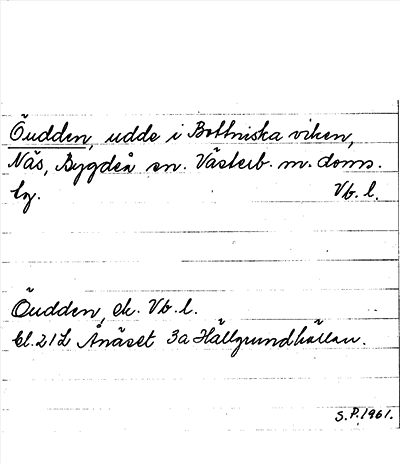 Öudden, udde i Bottniska viken,
Näs, Bygdeå sn. Västerb. m. doms.
lg. Vb. l.
Öudden, ek. Vb. l.
bl. 21L Ånäset 3a Hällgrundhällan.
S.P. 1961.